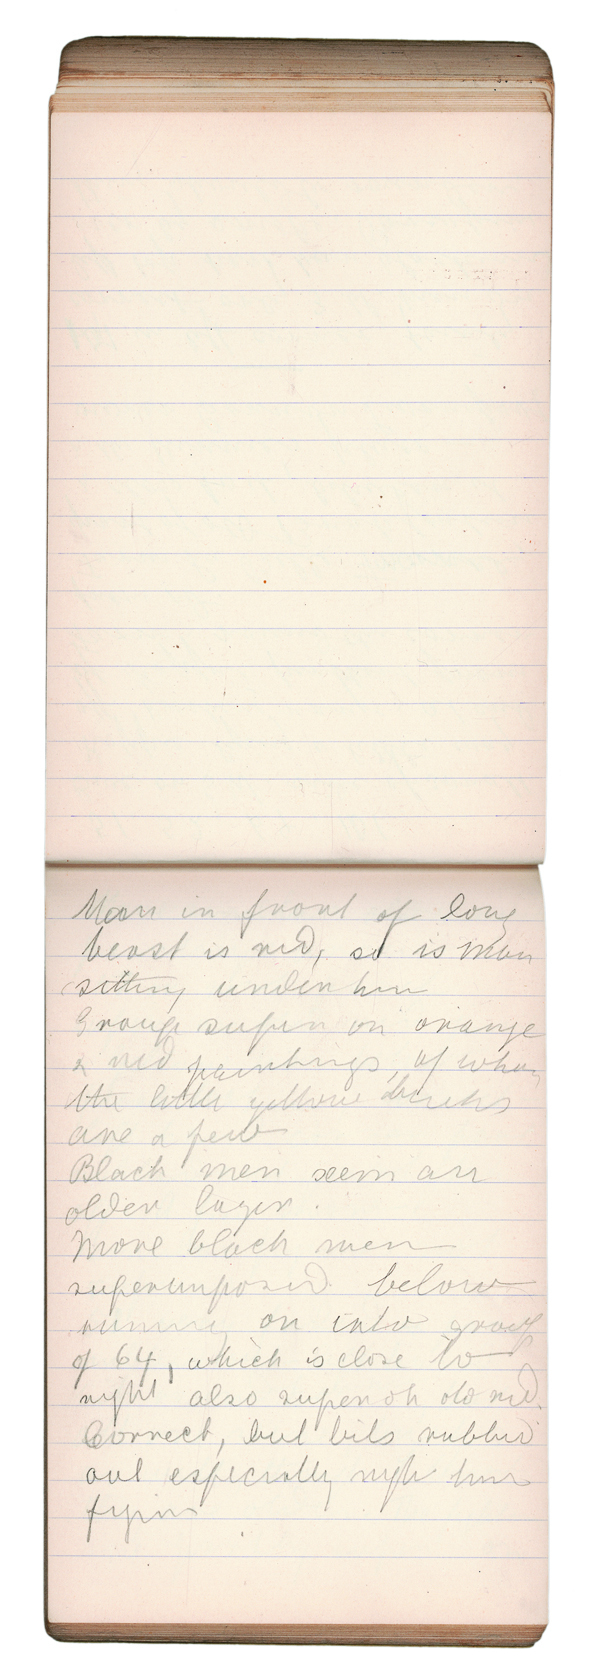 Man in front of long
beast is red, so is man
sitting under him
Group super on orange
& red paintings, of whom
the little yellow bucks
are a few
Black men seem an
older layer.
More black men
superimposed below
running on into group
of 64, which is close to
right also super on old red.
Correct, but bits rubbed
out especially right hand
figure